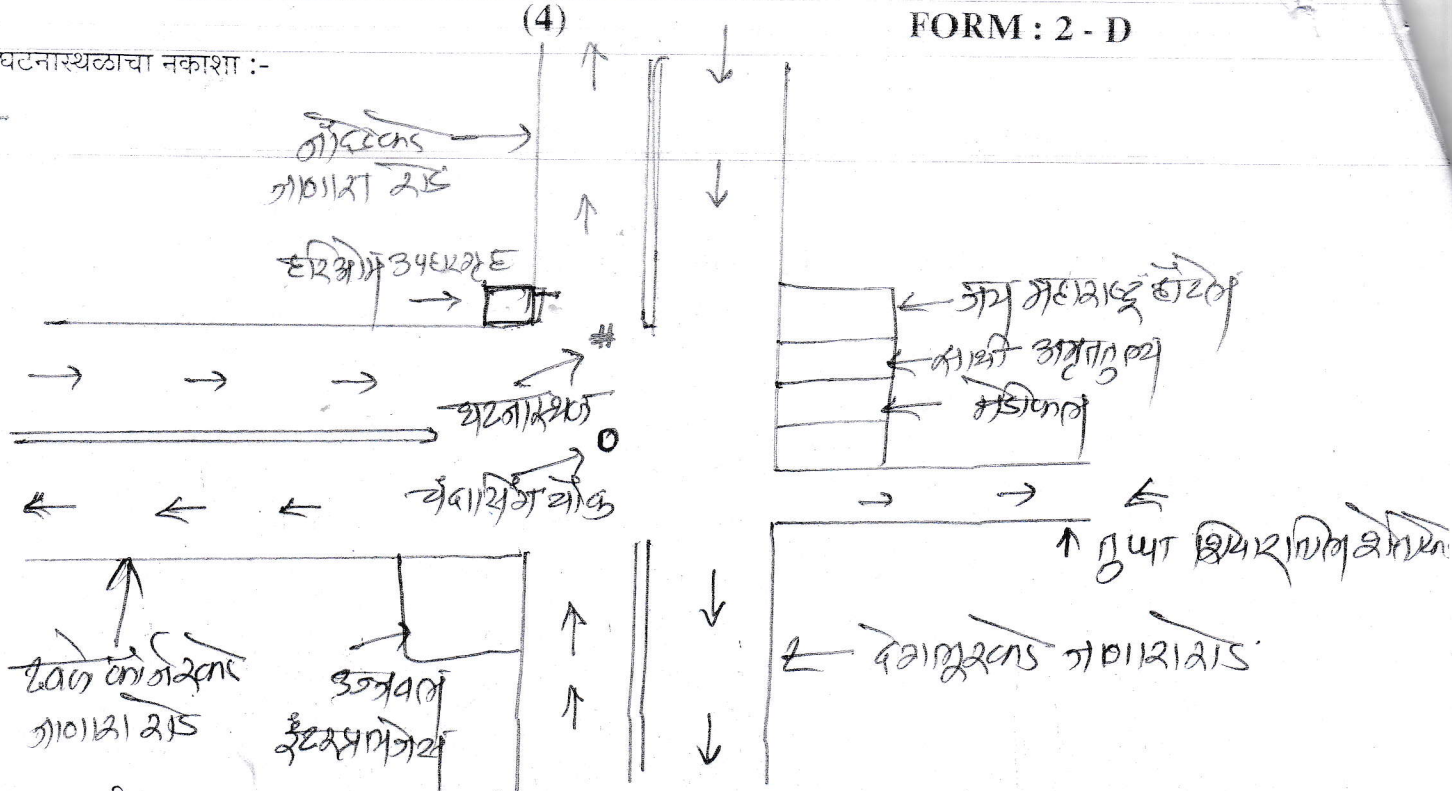 (4)
FORM : 2 - D
घटनास्थळाचा नकाशा :-
नांदेडकडे
जाणारा रोड
हरिओम उपहारगृह
जय महाराष्ट्र हॉटेल
#
साथी अमृततुल्य
मेडीकल
घटनास्थळ
O
चंदासिंग चौक
तुप्पा
देगलूरकडे जाणारा रोड
ढवळे कॉर्नरकडे
जाणारा रोड
उज्वल
इंटरप्रायजेस